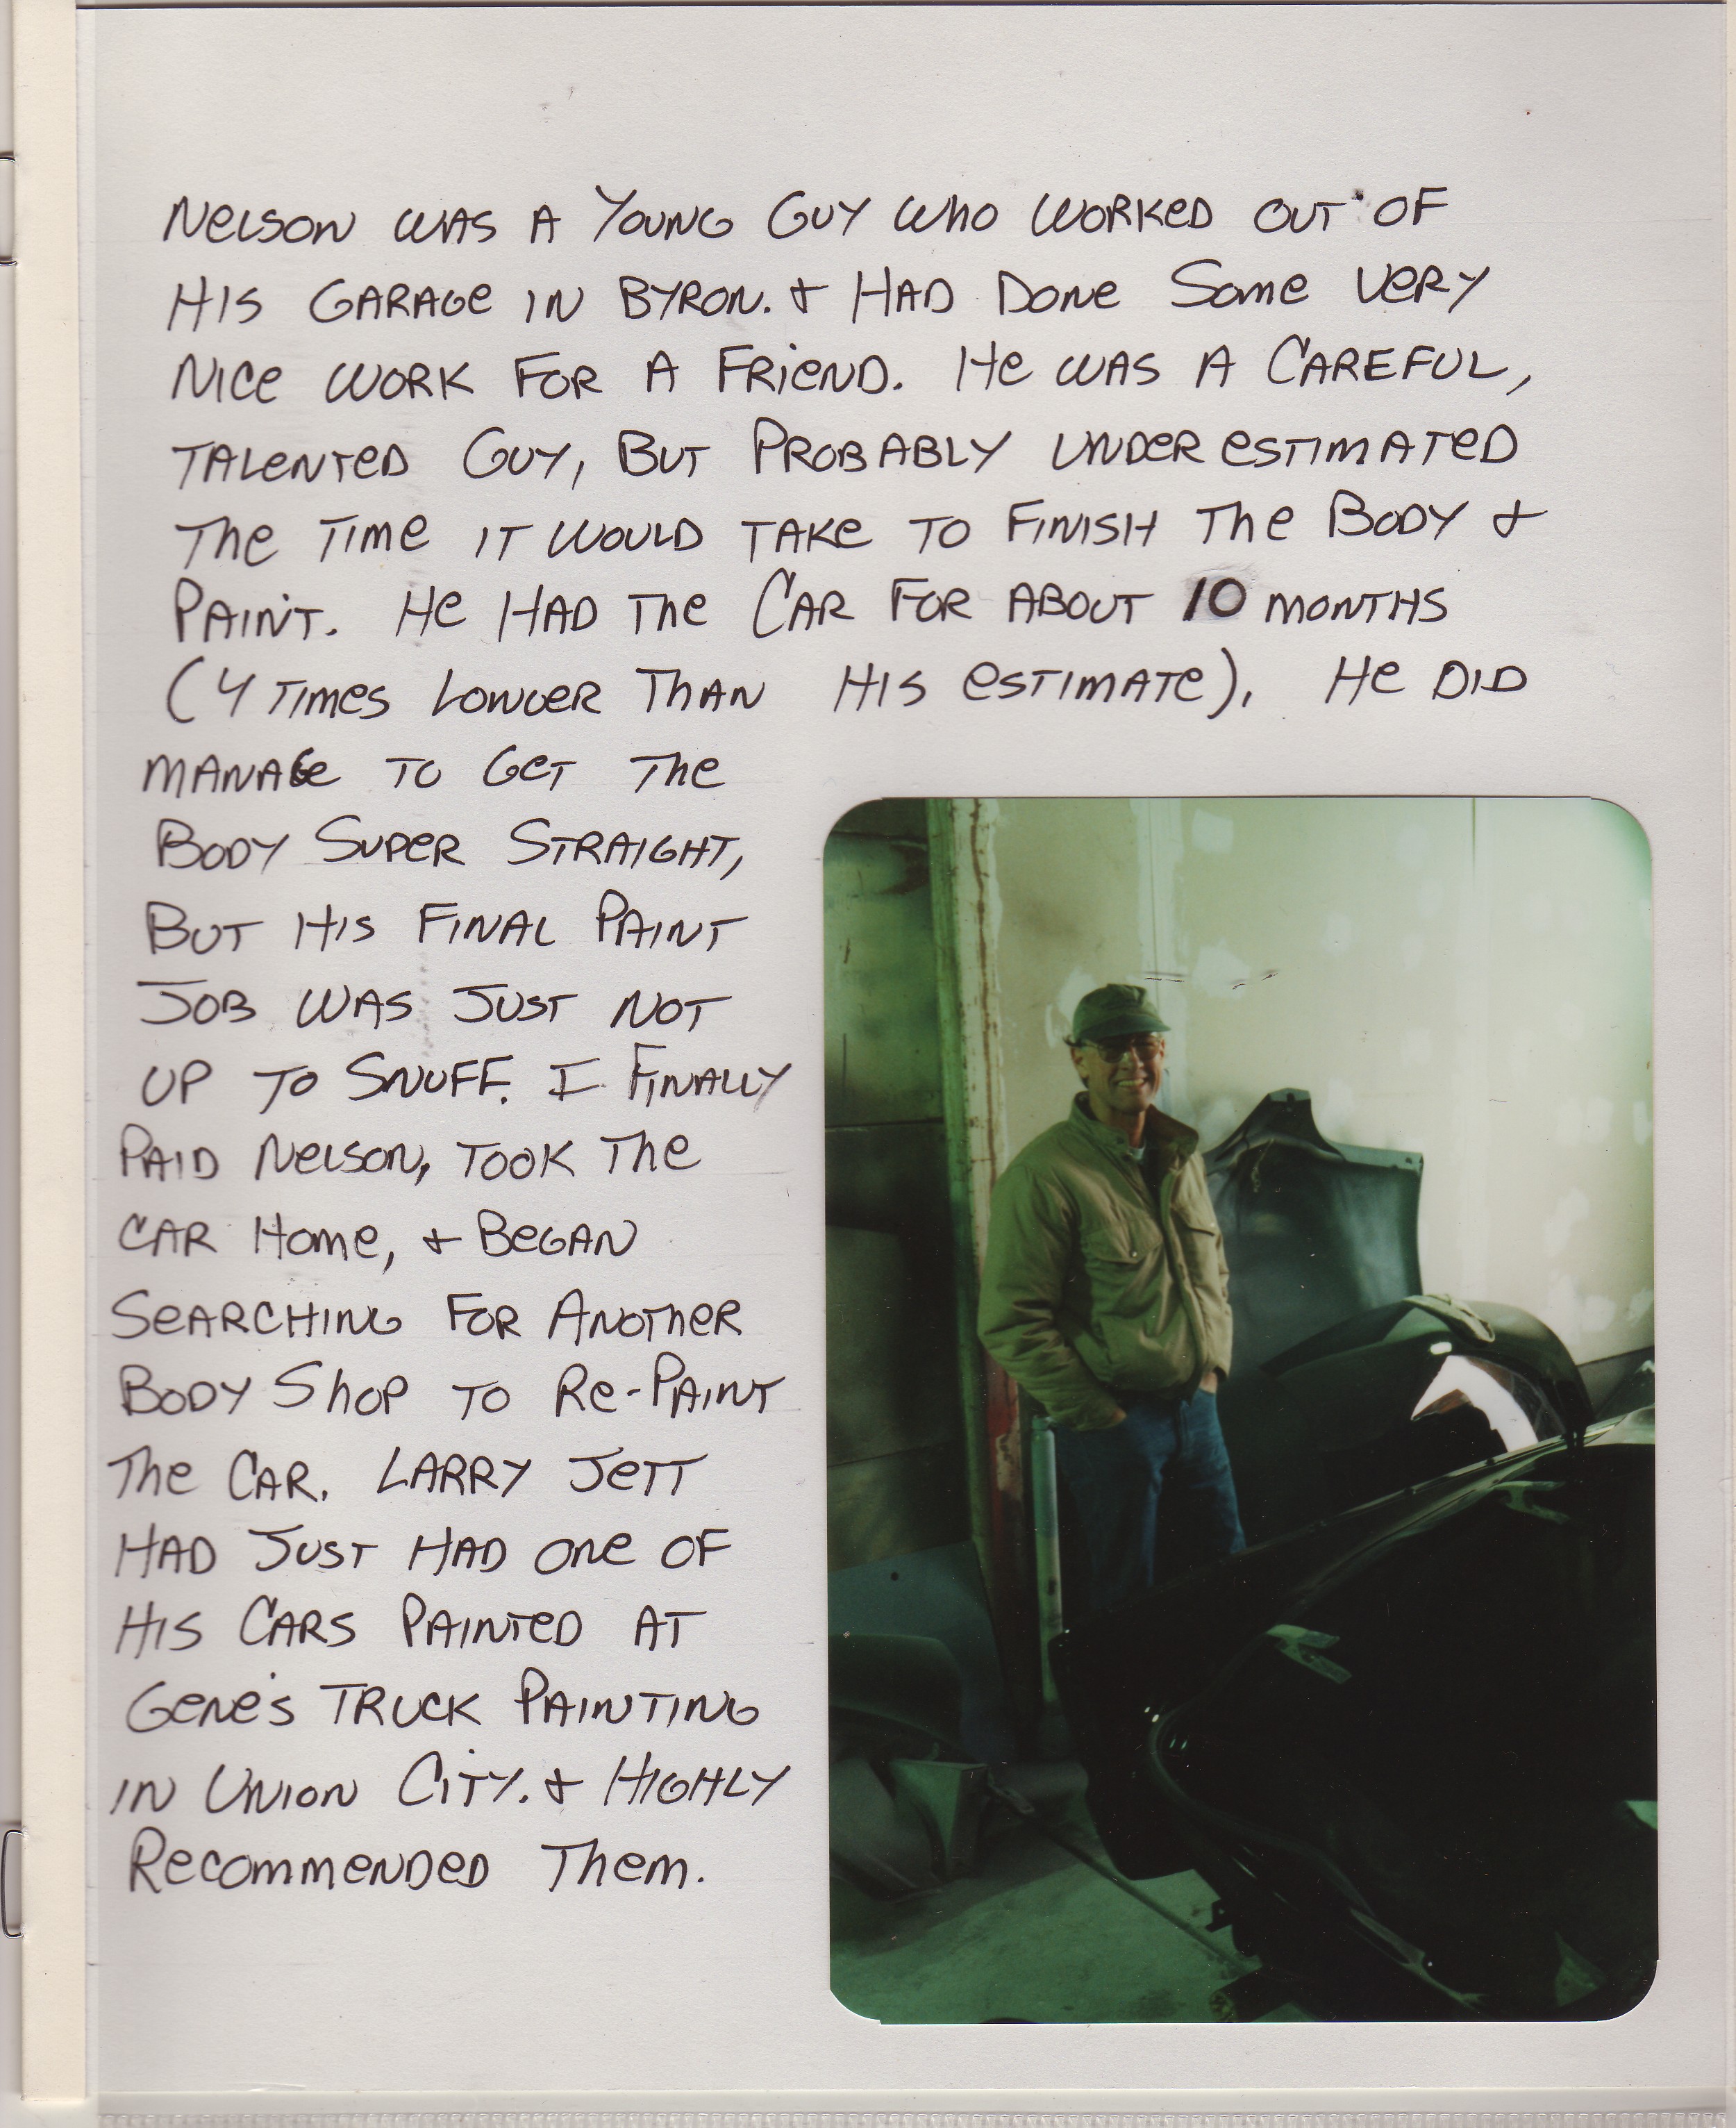 Nelson was a Young Guy who worked out of
His Garage in Byron. & Had Done Some very
Nice work For A Friend. He was A Careful,
Talented Guy, But Probably underestimated
The Time it would Take To Finish The Body &
Paint. He Had The Car For About 10 months
(4 Times Longer Than His estimate). He Did
manage To Get The
Body Super Straight,
But His Final Paint
Job was Just Not
up To Snuff. I Finally
Paid Nelson, Took The
Car Home, & Began
Searching For Another
Body Shop To Re-Paint
The Car. Larry Jett
Had Just Had one of
His Cars Painted At
Gene's Truck Painting
in Union City. & Highly
Recommended Them.